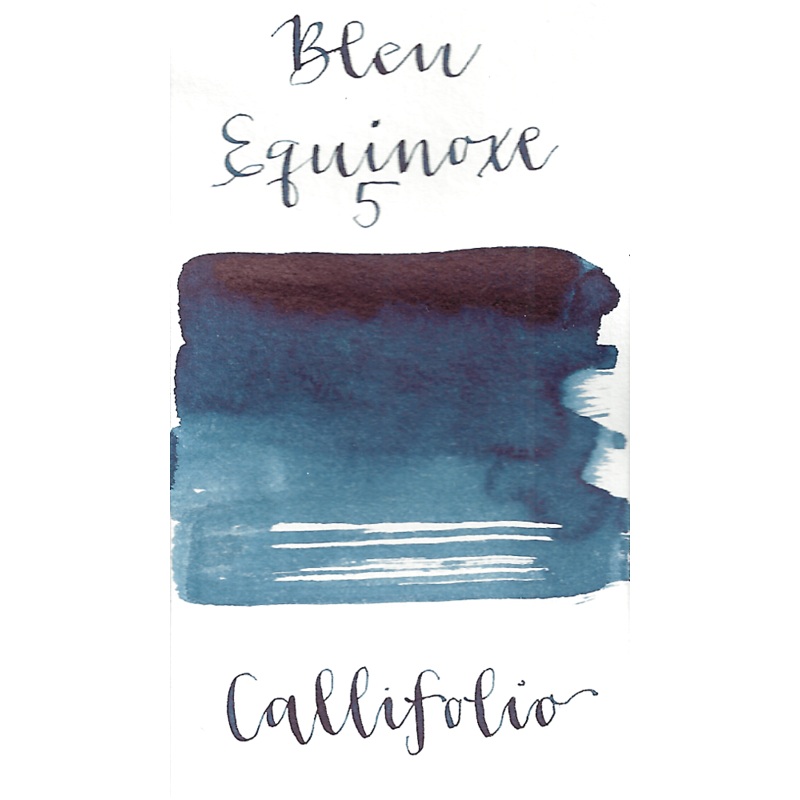 Bleu
Equinoxe
5
Callifolio